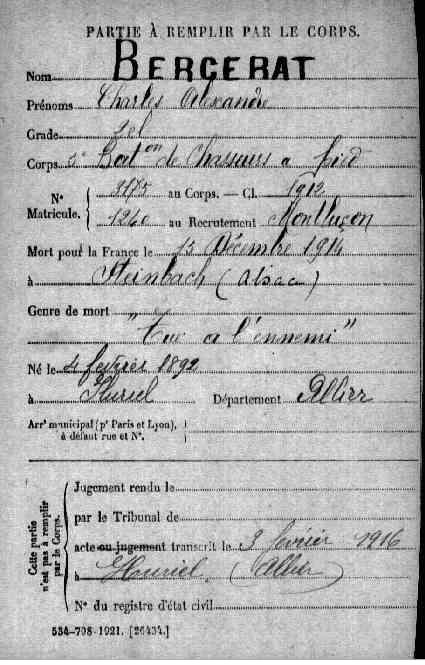 PARTIE À REMPLIR PAR LE CORPS.
Nom BERGERAT
Prénoms Charles Alexandre
Grade 2 cl
Corps 5e Bat on de Chasseurs a pied
N° Matricule. 3175 au Corps. — Cl. 1912
1240 au Recrutement Montluçon
Mort pour la France le 13 décembre 1914
à Steinbach (alsace)
Genre de mort
"Tué a l'ennemi"
Né le 4 février 1892
à Huriel Département Allier
Arrt municipal (pr Paris et Lyon),
à défaut rue et N°.
Cette partie n'est pas à remplir par le Corps.
Jugement rendu le
par le Tribunal de
acte ou jugement transcrit le 3 février 1916
à Huriel (Allier)
N° du registre d'état civil
534-708-1921. [26434.]